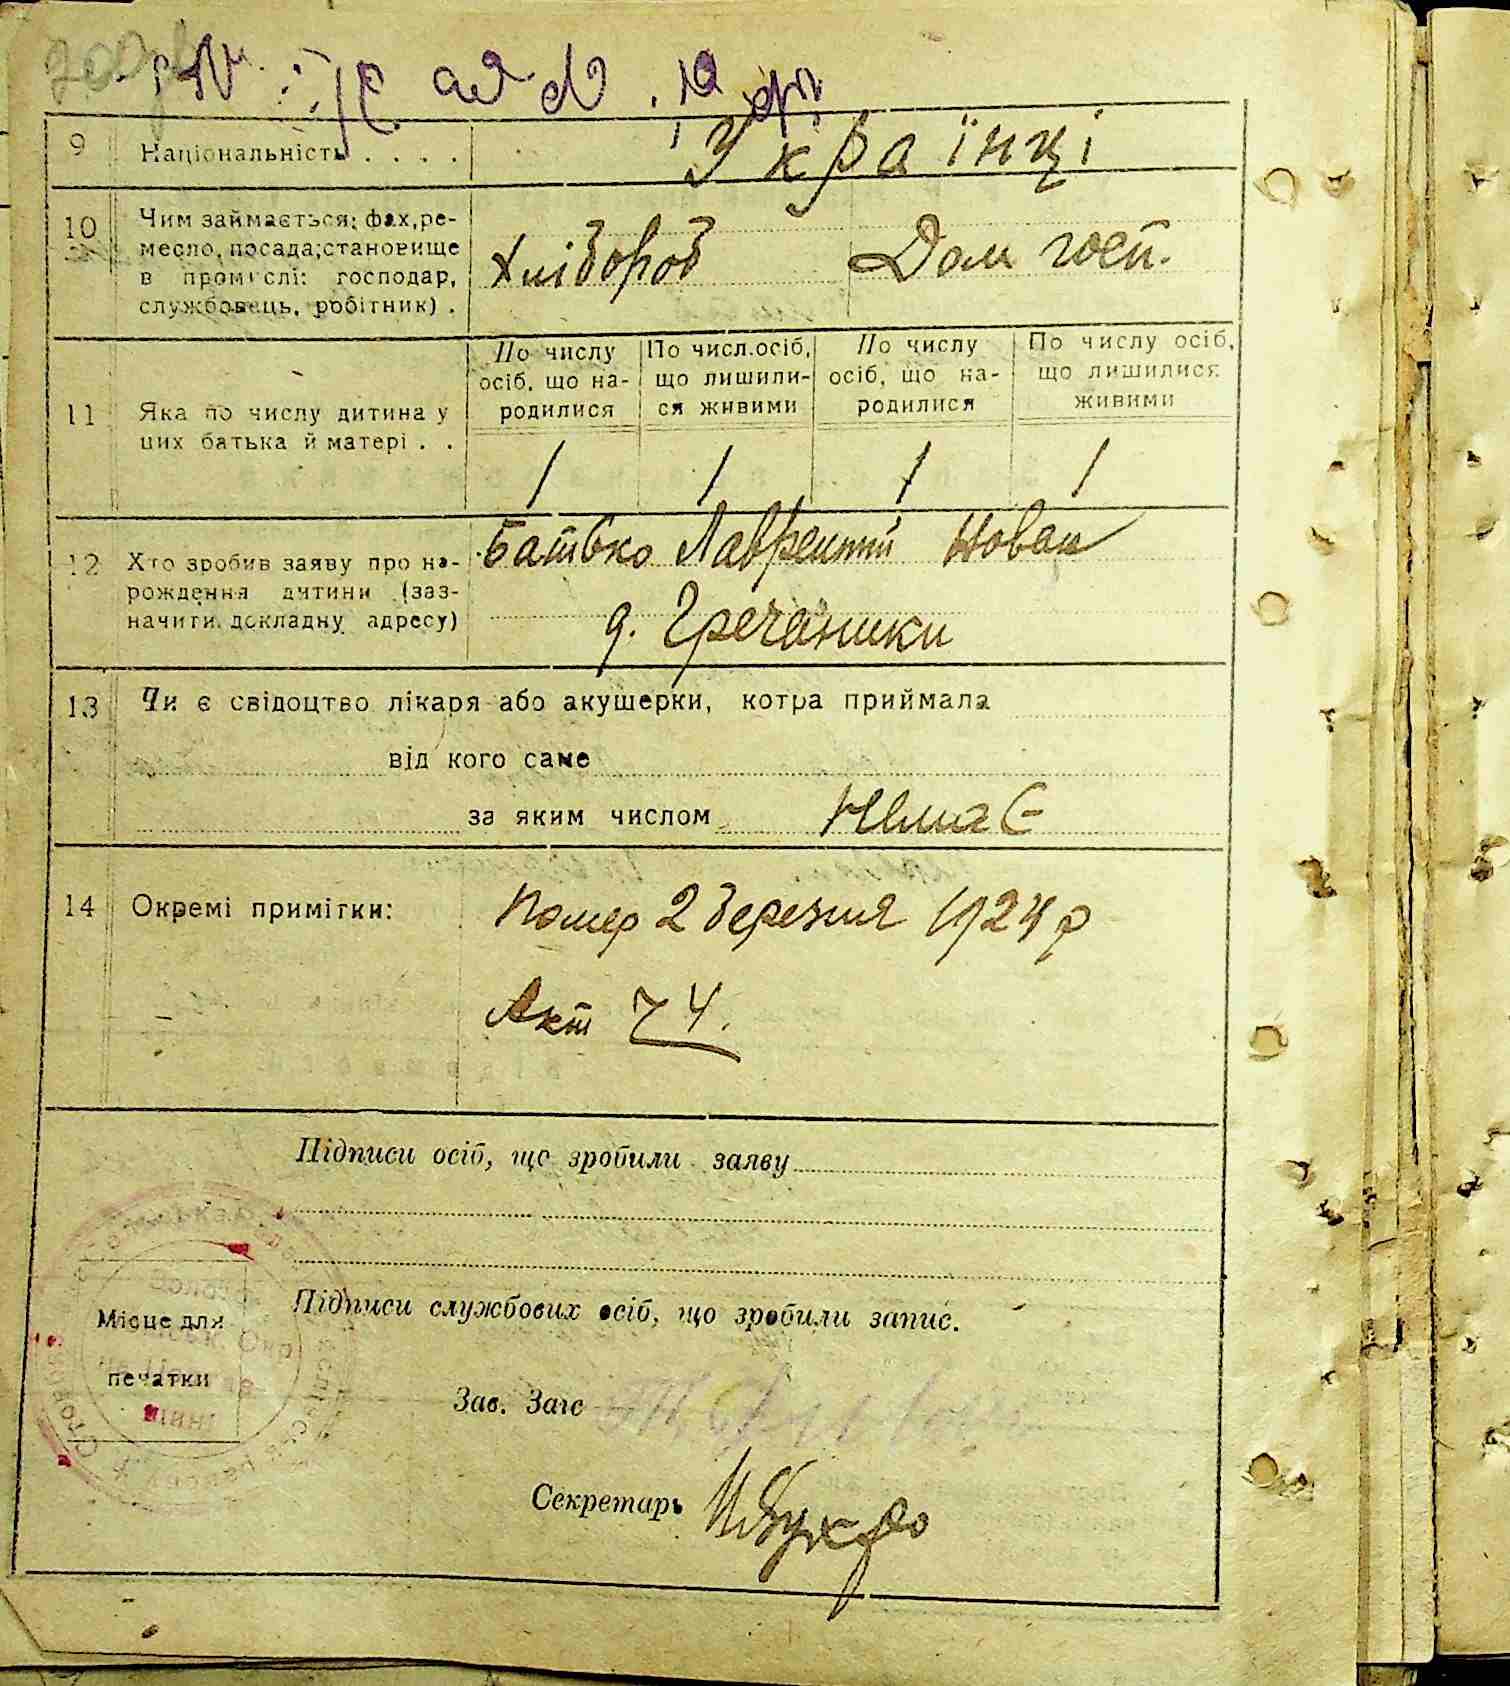 9 Національність . . . . Українці
10 Чим займається; фах, ре-
месло, посада; становище
в промислі: господар,
службовець, робітник) .
Хлібороб Дом госп.
11 Яка по числу дитина у
цих батька й матері . .
По числу осіб, що на-родилися
По числ. осіб, що лишили-ся живими
По числу осіб, що на-родилися
По числу осіб, що лишилися живими
1 1 1 1
12 Хто зробив заяву про на-
рождення дитини (заз-
начити докладну адресу)
Батько Лаврентій Новак
д. Гречаники
13 Чи є свідоцтво лікаря або акушерки, котра приймала
від кого саме
за яким числом Немає
14 Окремі примітки:
Помер 2 березня 1924 р
Акт 74.
Підписи осіб, що зробили заяву
Підписи службових осіб, що зробили запис.
Місце для
печатки
Зав. Загс
Секретарь